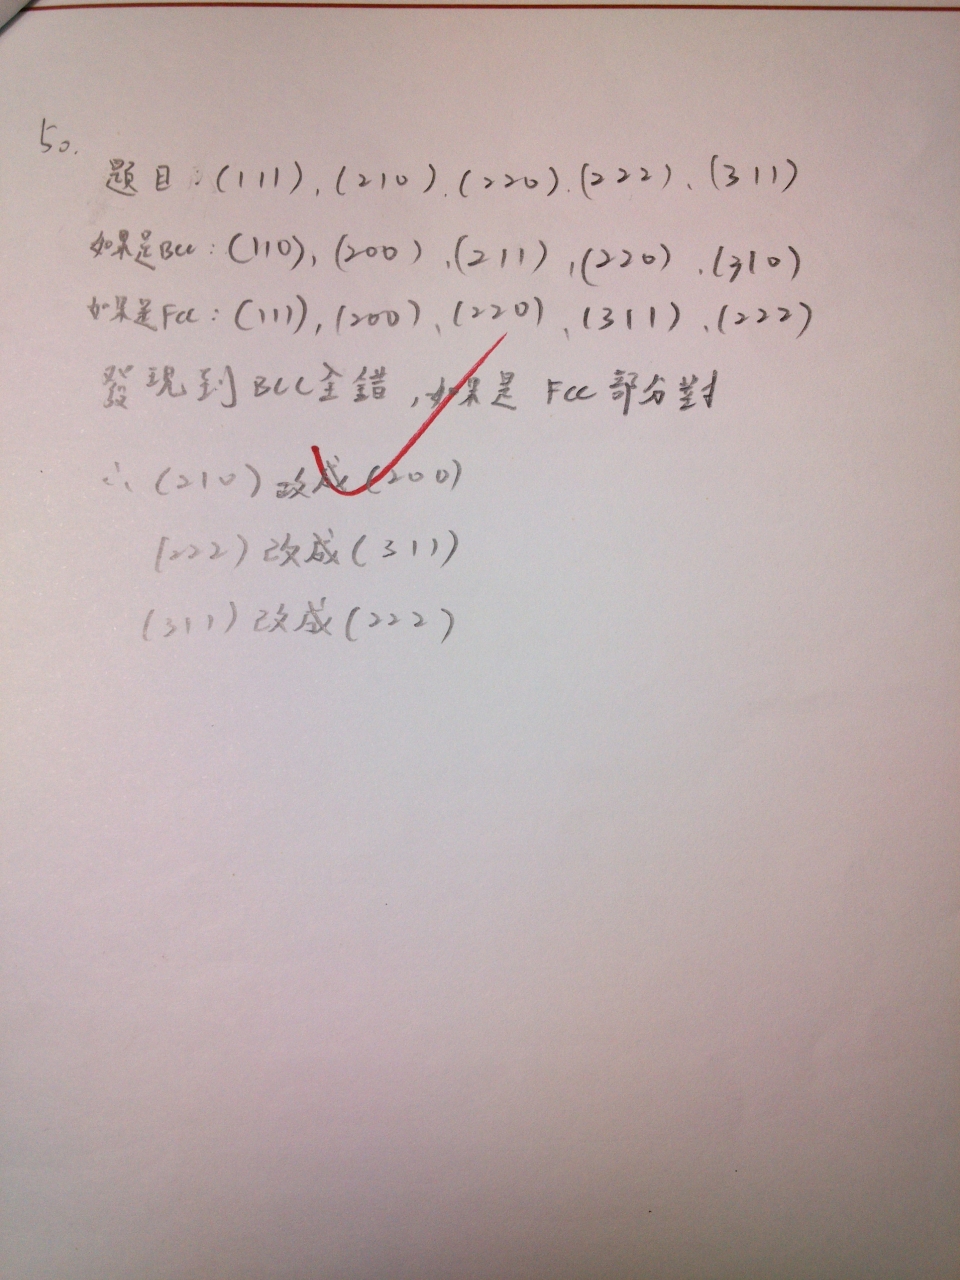 50.
題目:(111),(210).(220).(222)、(311)
如果是Bcc:(110),(200),(211),(220),(310)
如果是Fcc:(111),(200)、(220)、(311)、(222)
發現到BCC全錯,如果是 Fcc 部分對
∴ (210)改成(200)
(222)改成(311)
(311)改成(222)